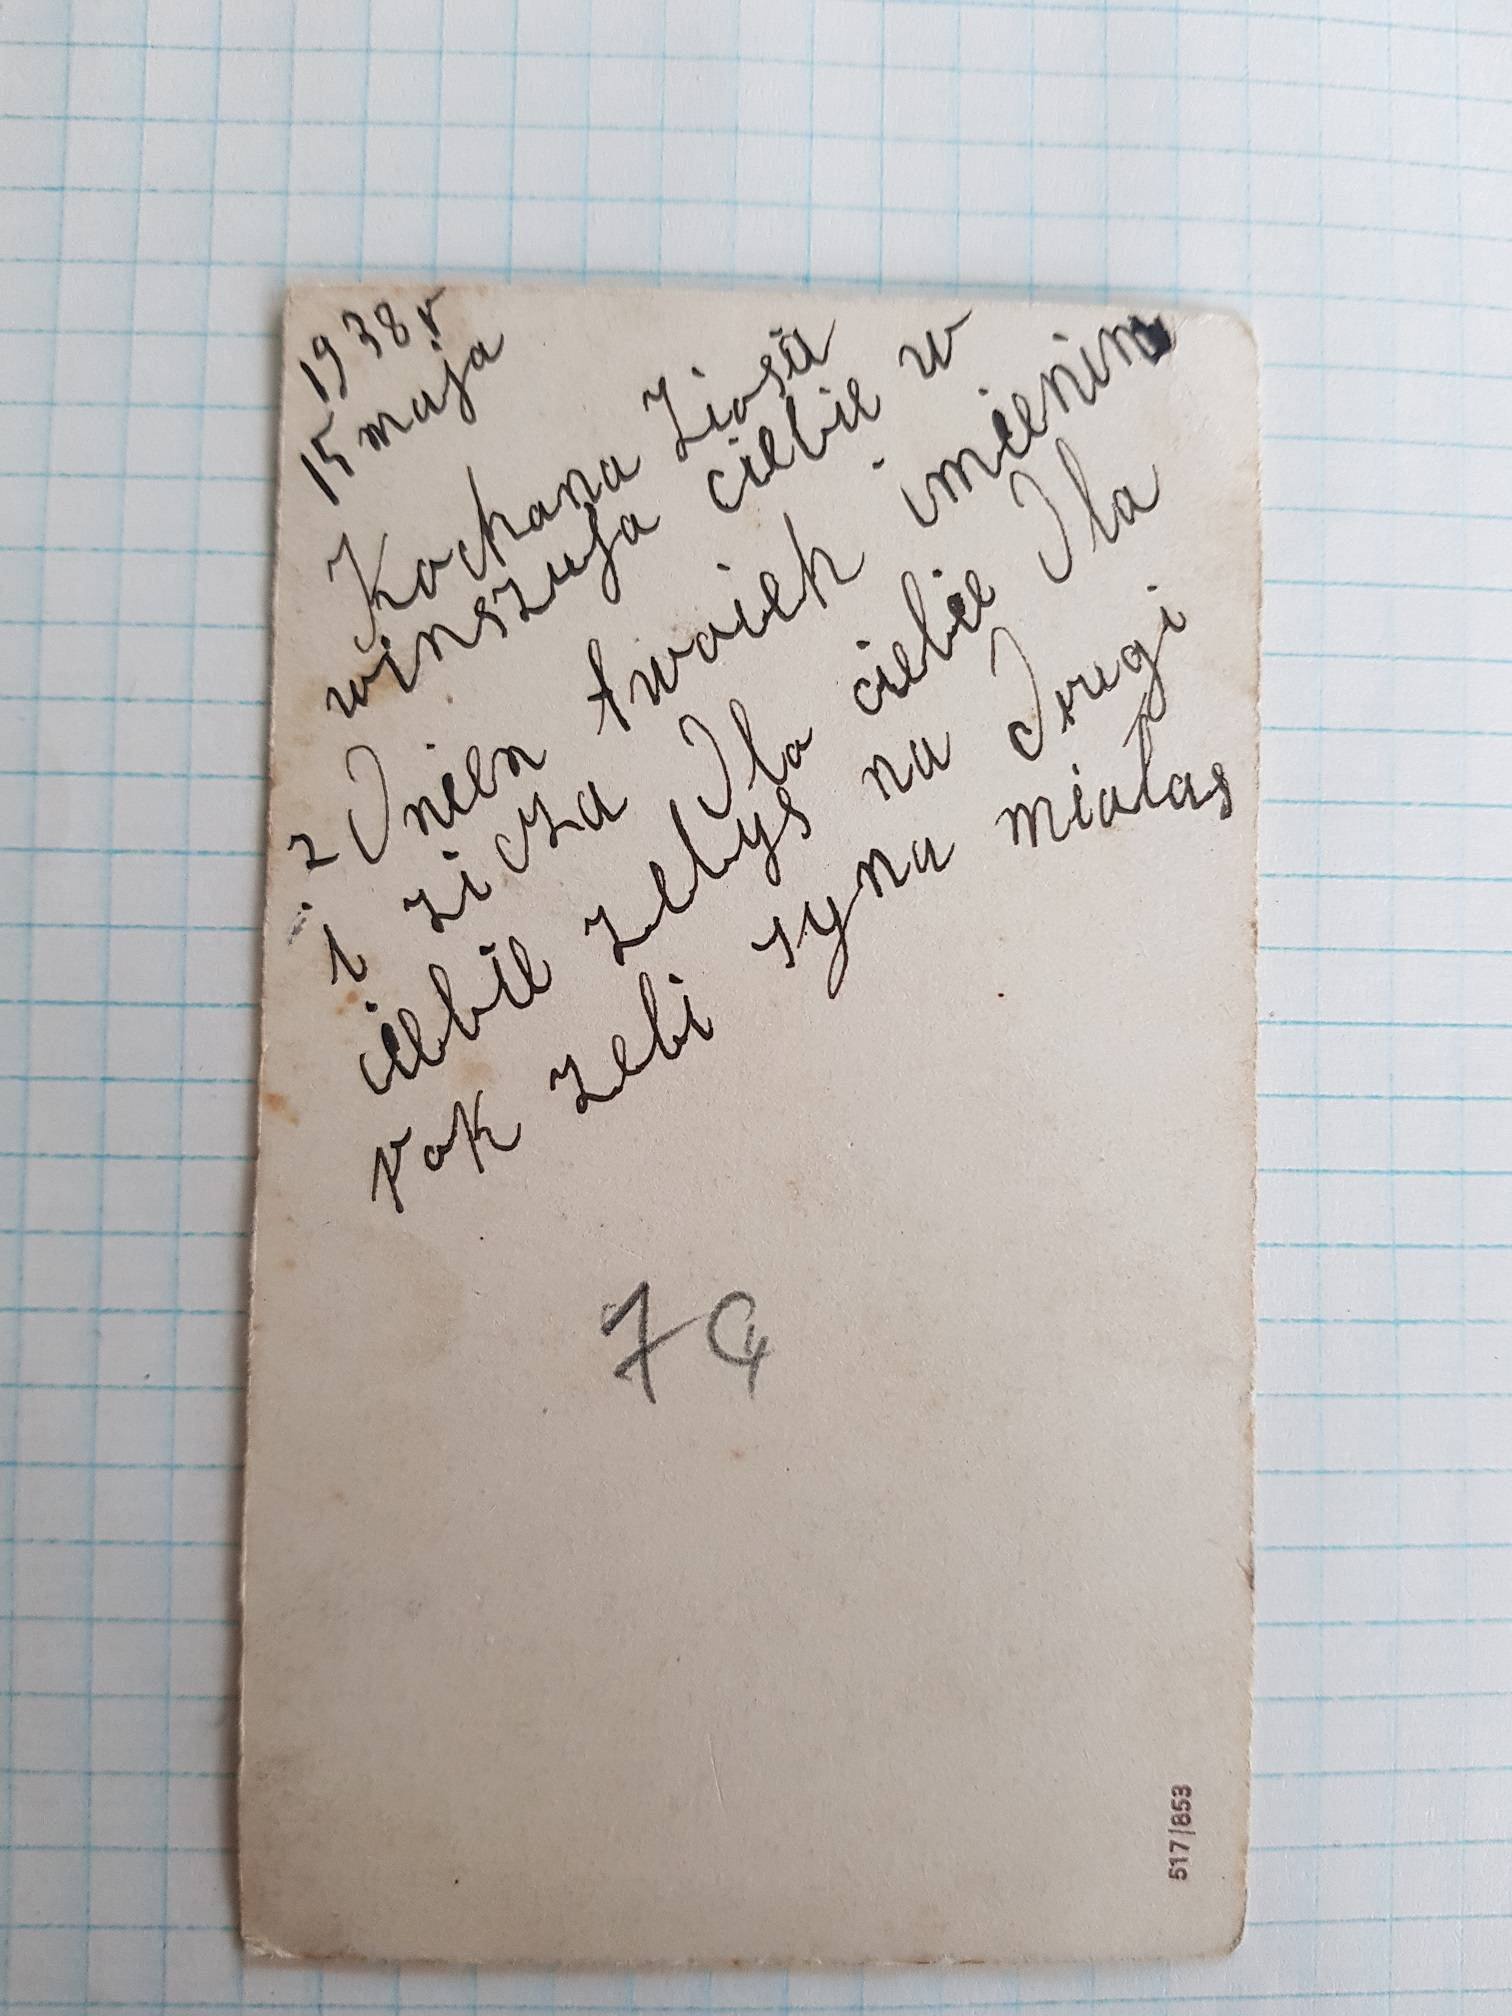 1938 r
15 maja
Kochana Ziosa
winszuja ciebie w
z Dnien twoich imienin
i zicza Dla ciebie Dla
ciebie zebys na Drugi
rok zebi syna mialas
74
517/853